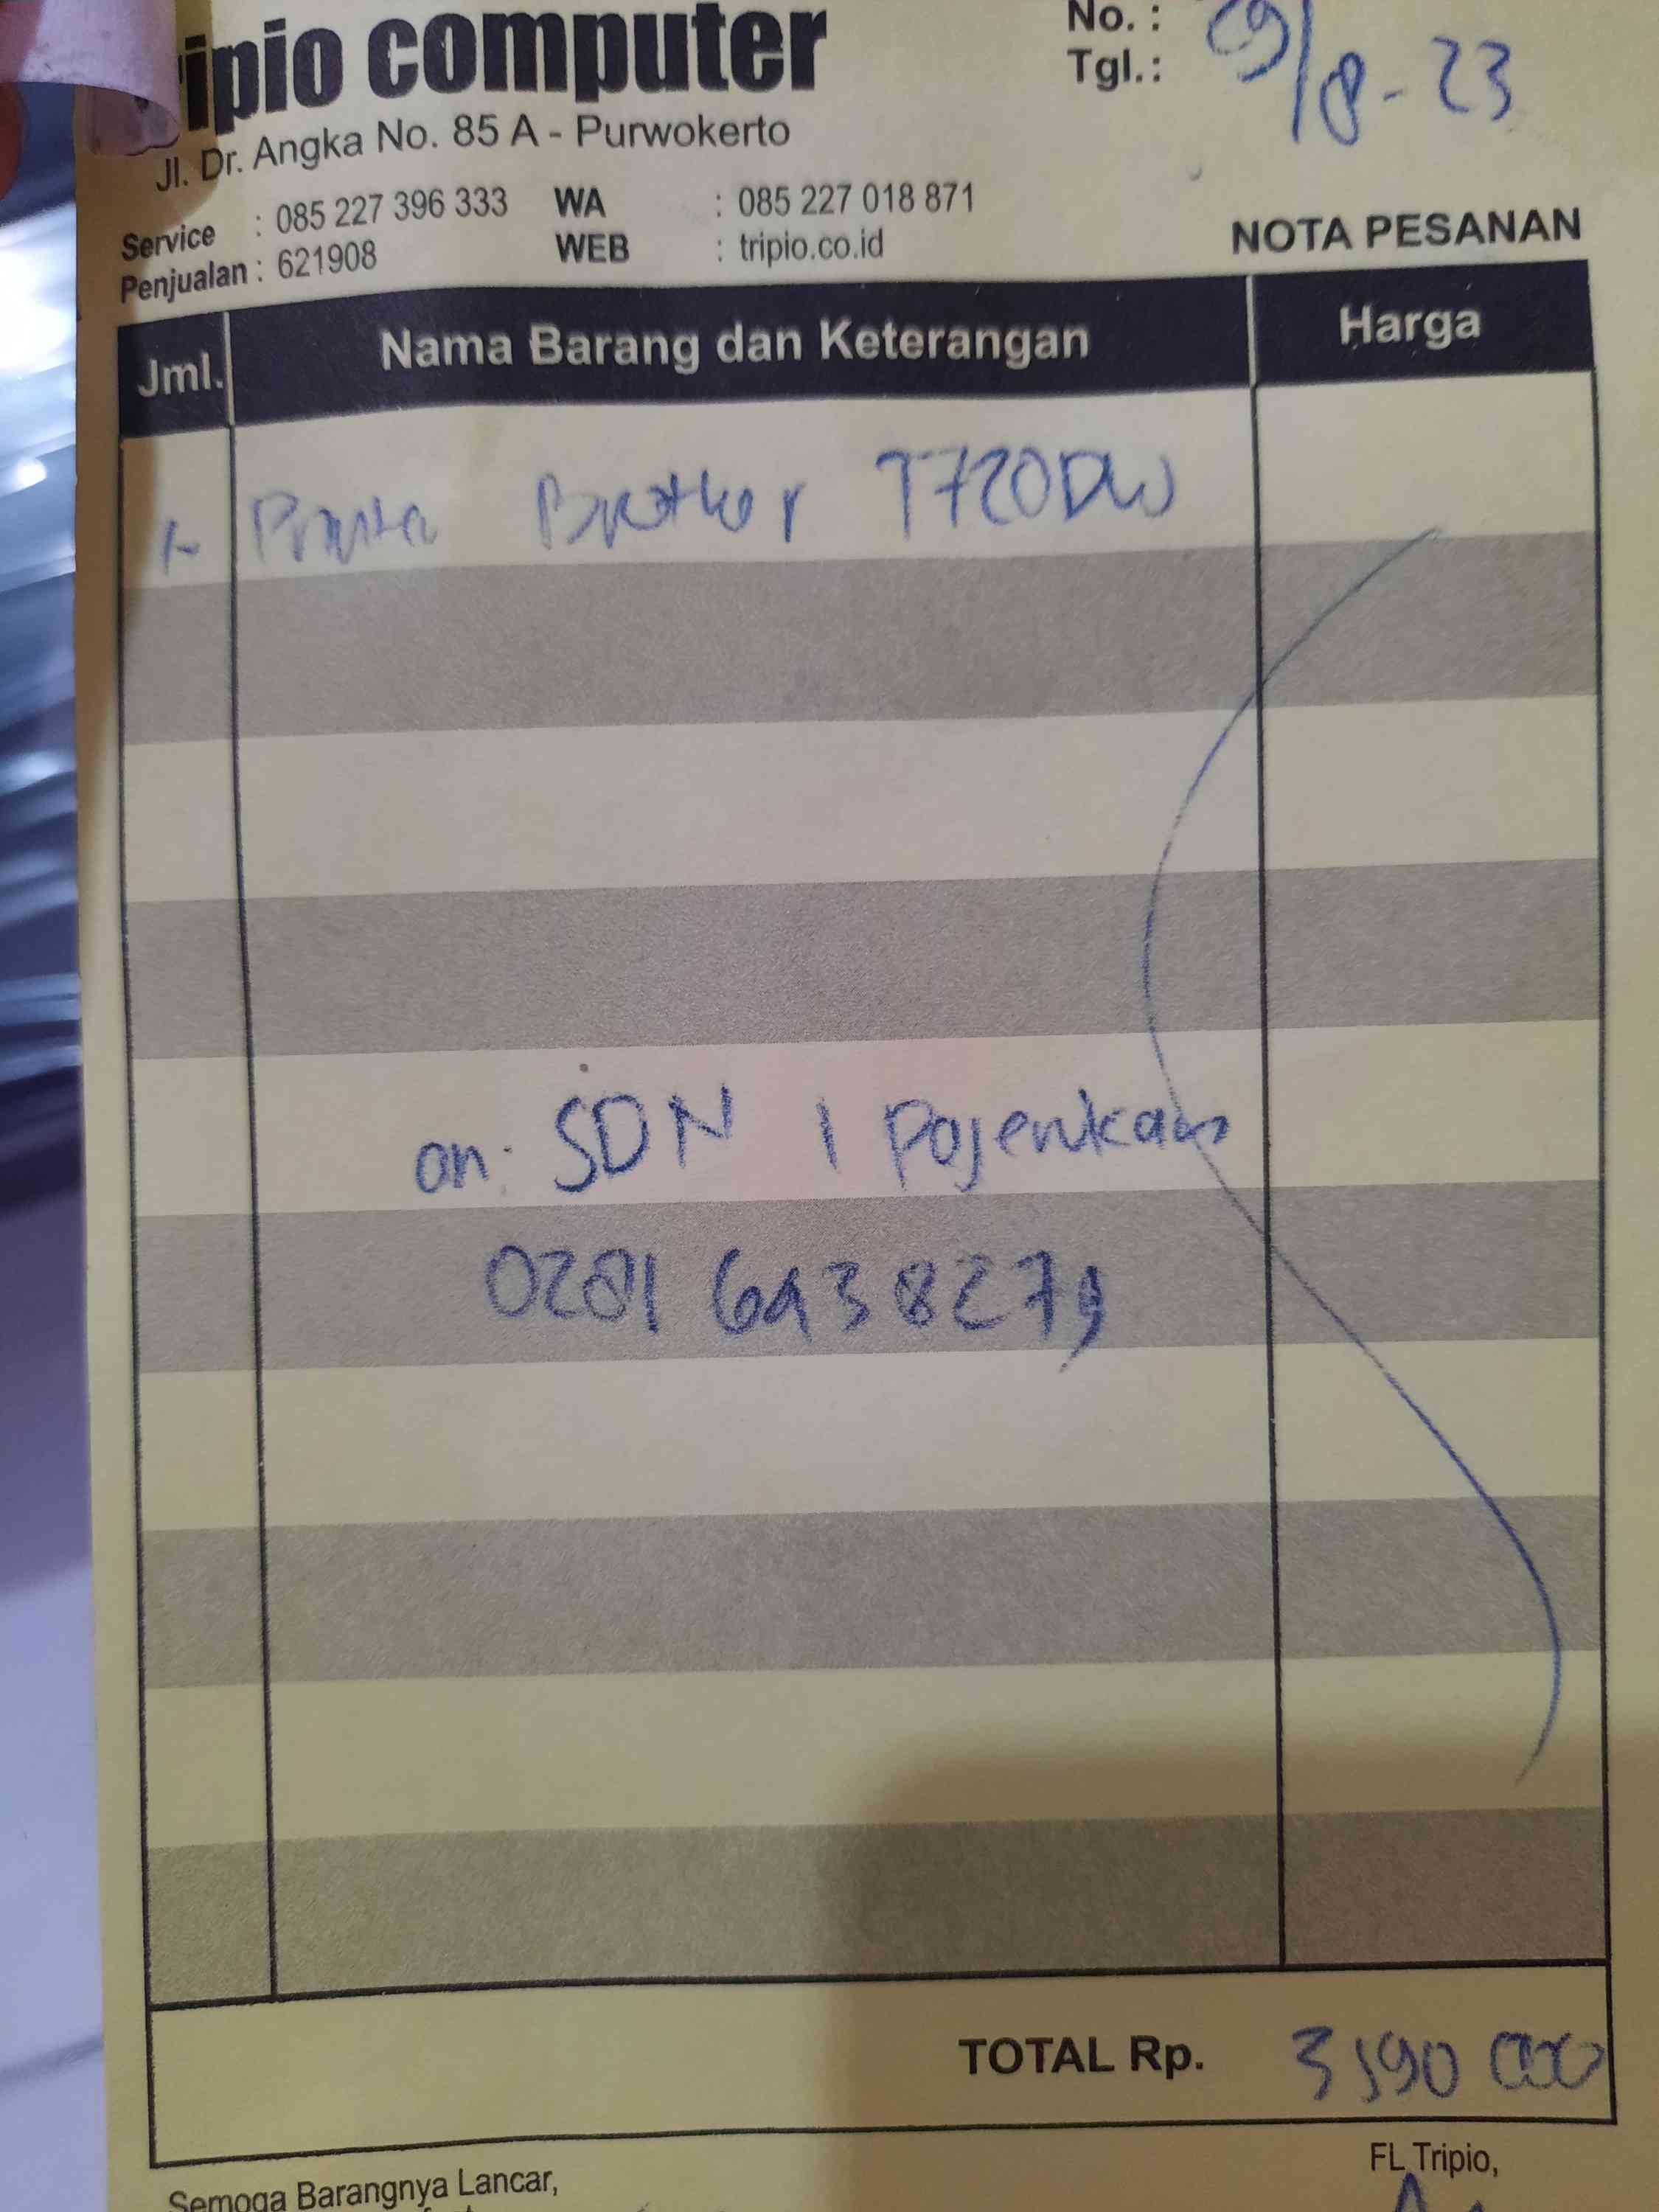 Tripio computer
Jl. Dr. Angka No. 85 A - Purwokerto
Service : 085 227 396 333 WA : 085 227 018 871
Penjualan : 621908 WEB : tripio.co.id
No. :
Tgl. : 29/8-23
NOTA PESANAN
Jml. Nama Barang dan Keterangan Harga
1- Printer Brother T720DW
an. SDN 1 Pajerukan
0281 6438279
TOTAL Rp. 3590 000
FL Tripio,
Semoga Barangnya Lancar,